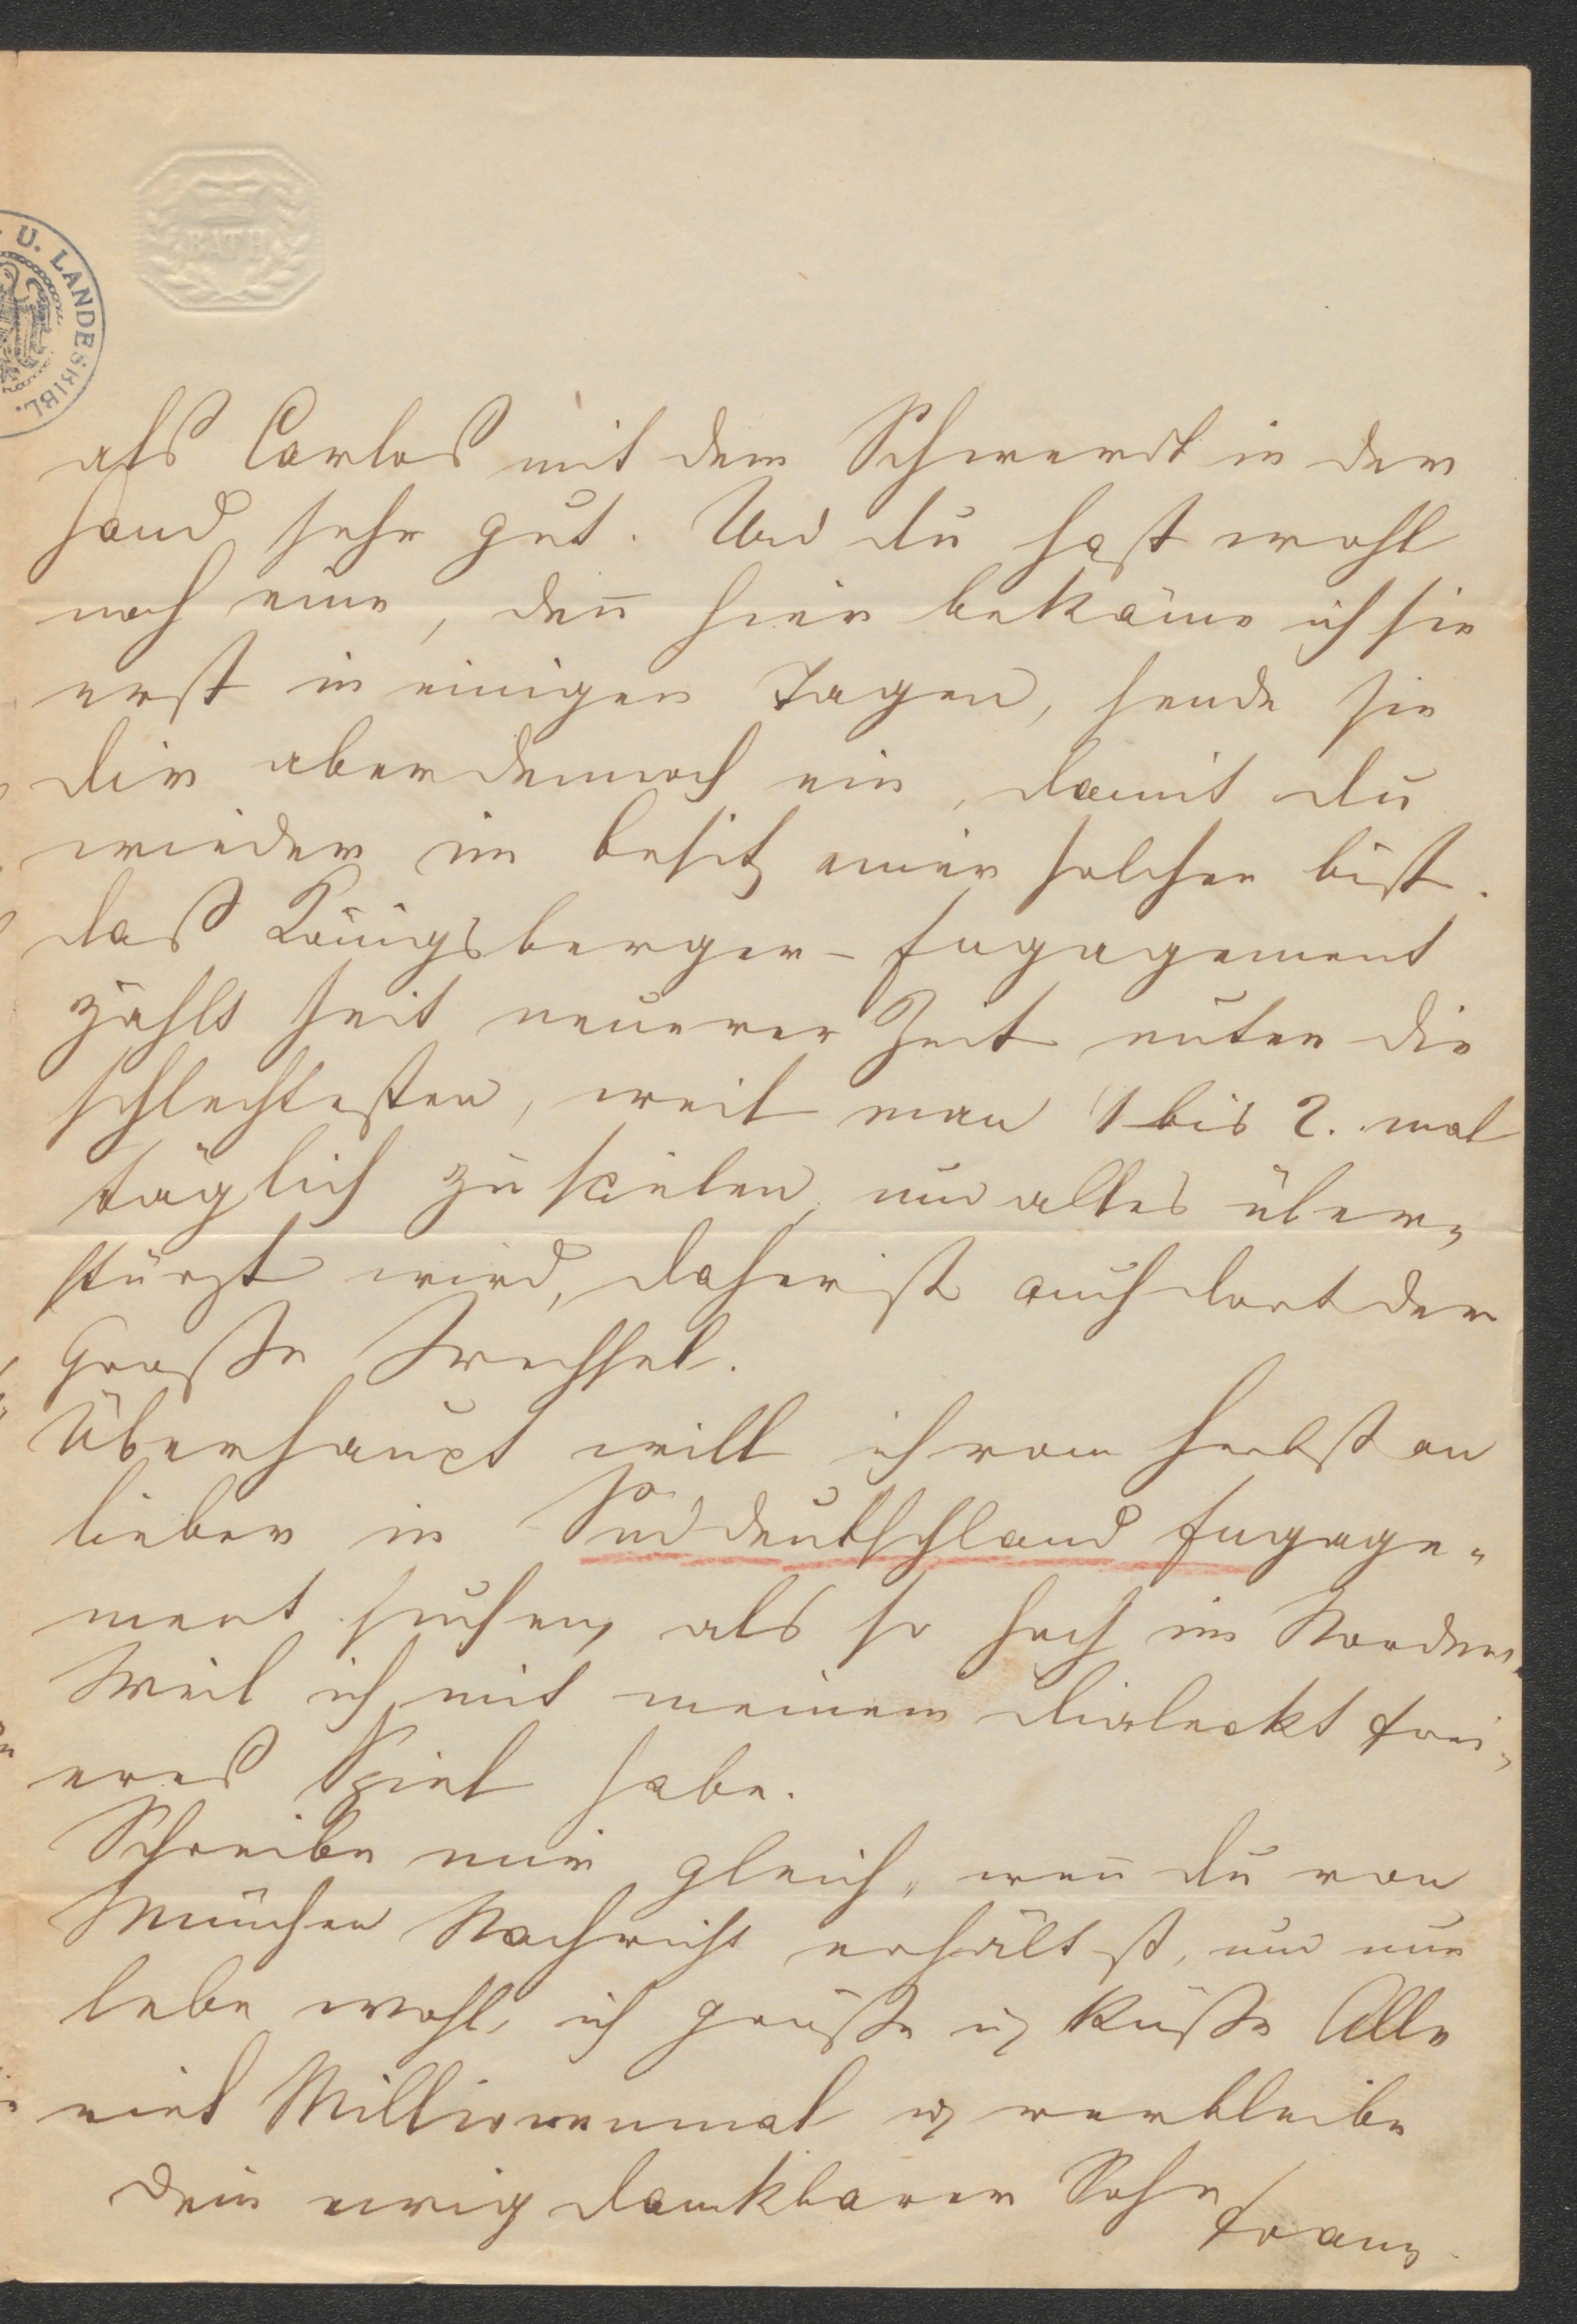 BATH
U. LANDESBIBL.
als Carlos mit dem Schwerdt in der
Hand sehr gut. Und du hast wohl
noch eine, den̄ hier bekäme ich sie
erst in einigen Tagen, sende sie
dir aber dennoch ein, damit du
wieder im Besitz einer solchen bist.
das Königsberger-Engagement
zählt seit neuerer Zeit unter die
schlechtesten, weil man 1 bis 2. mal
täglich zu spielen und alles über-
stürzt wird, daher ist auch dort der
Große Wechsel.
Überhaupt will ich vom Herbst an
lieber in Süddeutschland Engage-
ment suchen, als so hoch im Norden.
Weil ich mit meinem Dialeckt frei-
eres Spiel habe.
Schreibe mir gleich, wen̄ du von
München Nachricht erhältst, und nun
lebe wohl, ich grüße u. küße Alle
viel Millionenmal u. verbleibe
dein ewig dankbarer Sohn
Franz